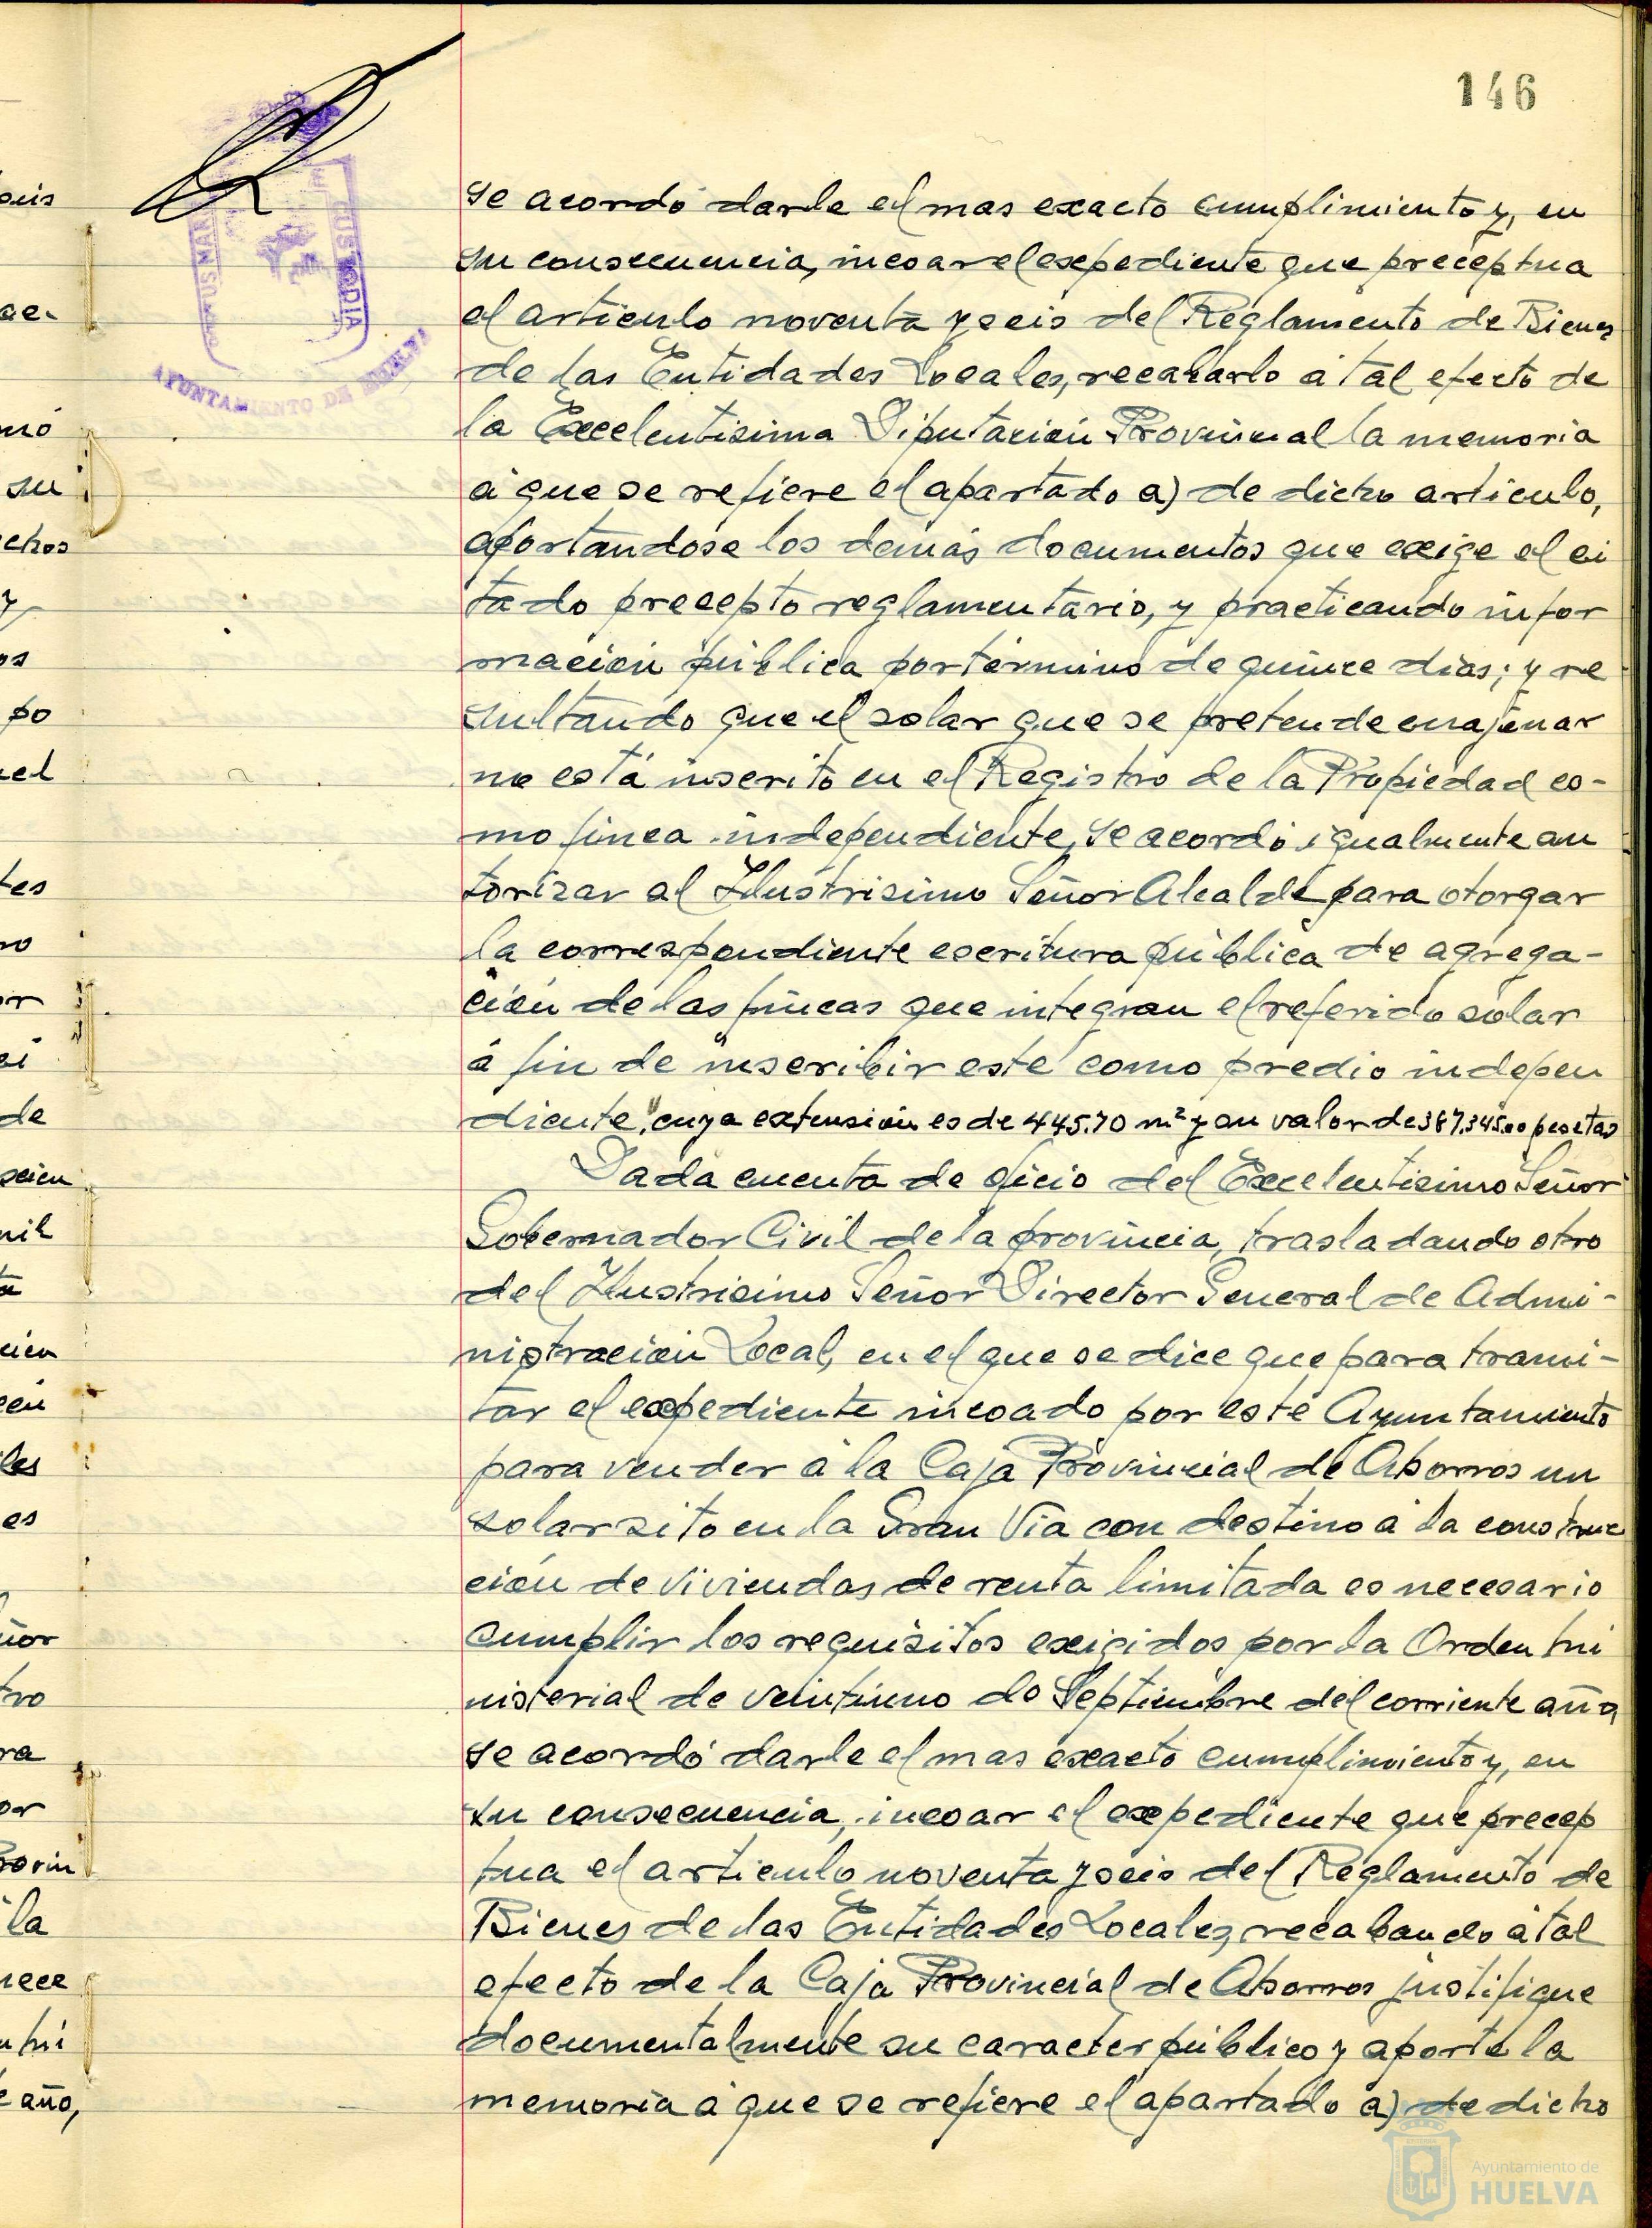 146
se acordó darle el mas exacto cumplimiento y, en
su consecuencia, incoar el expediente que preceptua
el articulo noventa y seis del Reglamento de Bienes
de las Entidades Locales, recabarlo á tal efecto de
la Excelentisima Diputación Provincial la memoria
á que se refiere el apartado a) de dicho articulo,
aportandose los demás documentos que exige el ci
tado precepto reglamentario, y practicando infor
mación pública por término de quince dias; y re
sultando que el solar que se pretende enajenar
no está inscrito en el Registro de la Propiedad co-
mo finca independiente, se acordó igualmente au
torizar al Ilustrisimo Señor Alcalde para otorgar
la correspondiente escritura pública de agrega-
ción de las fincas que integran el referido solar
á fin de inscribir este como predio indepen
diente, "cuya extensión es de 445.70 m² y su valor de 387.345.00 pesetas
Dada cuenta de oficio del Excelentisimo Señor
Gobernador Civil de la provincia, trasladando otro
del Ilustrisimo Señor Director General de Admi-
nistración Local, en el que se dice que para trami-
tar el expediente incoado por este Ayuntamiento
para vender á la Caja Provincial de Ahorros un
solar sito en la Gran Via con destino á la construc
ción de viviendas de renta limitada es necesario
cumplir los requisitos exigidos por la Orden Mi
nisterial de veintiuno de Septiembre del corriente año,
se acordó darle el mas exacto cumplimiento y, en
su consecuencia, incoar el expediente que precep
tua el articulo noventa y seis del Reglamento de
Bienes de las Entidades Locales, recabando á tal
efecto de la Caja Provincial de Ahorros justifique
documentalmente su caracter público y aporte la
memoria á que se refiere el apartado a) de dicho
CUSTODIA
AYUNTAMIENTO DE HUELVA
Ayuntamiento de
HUELVA